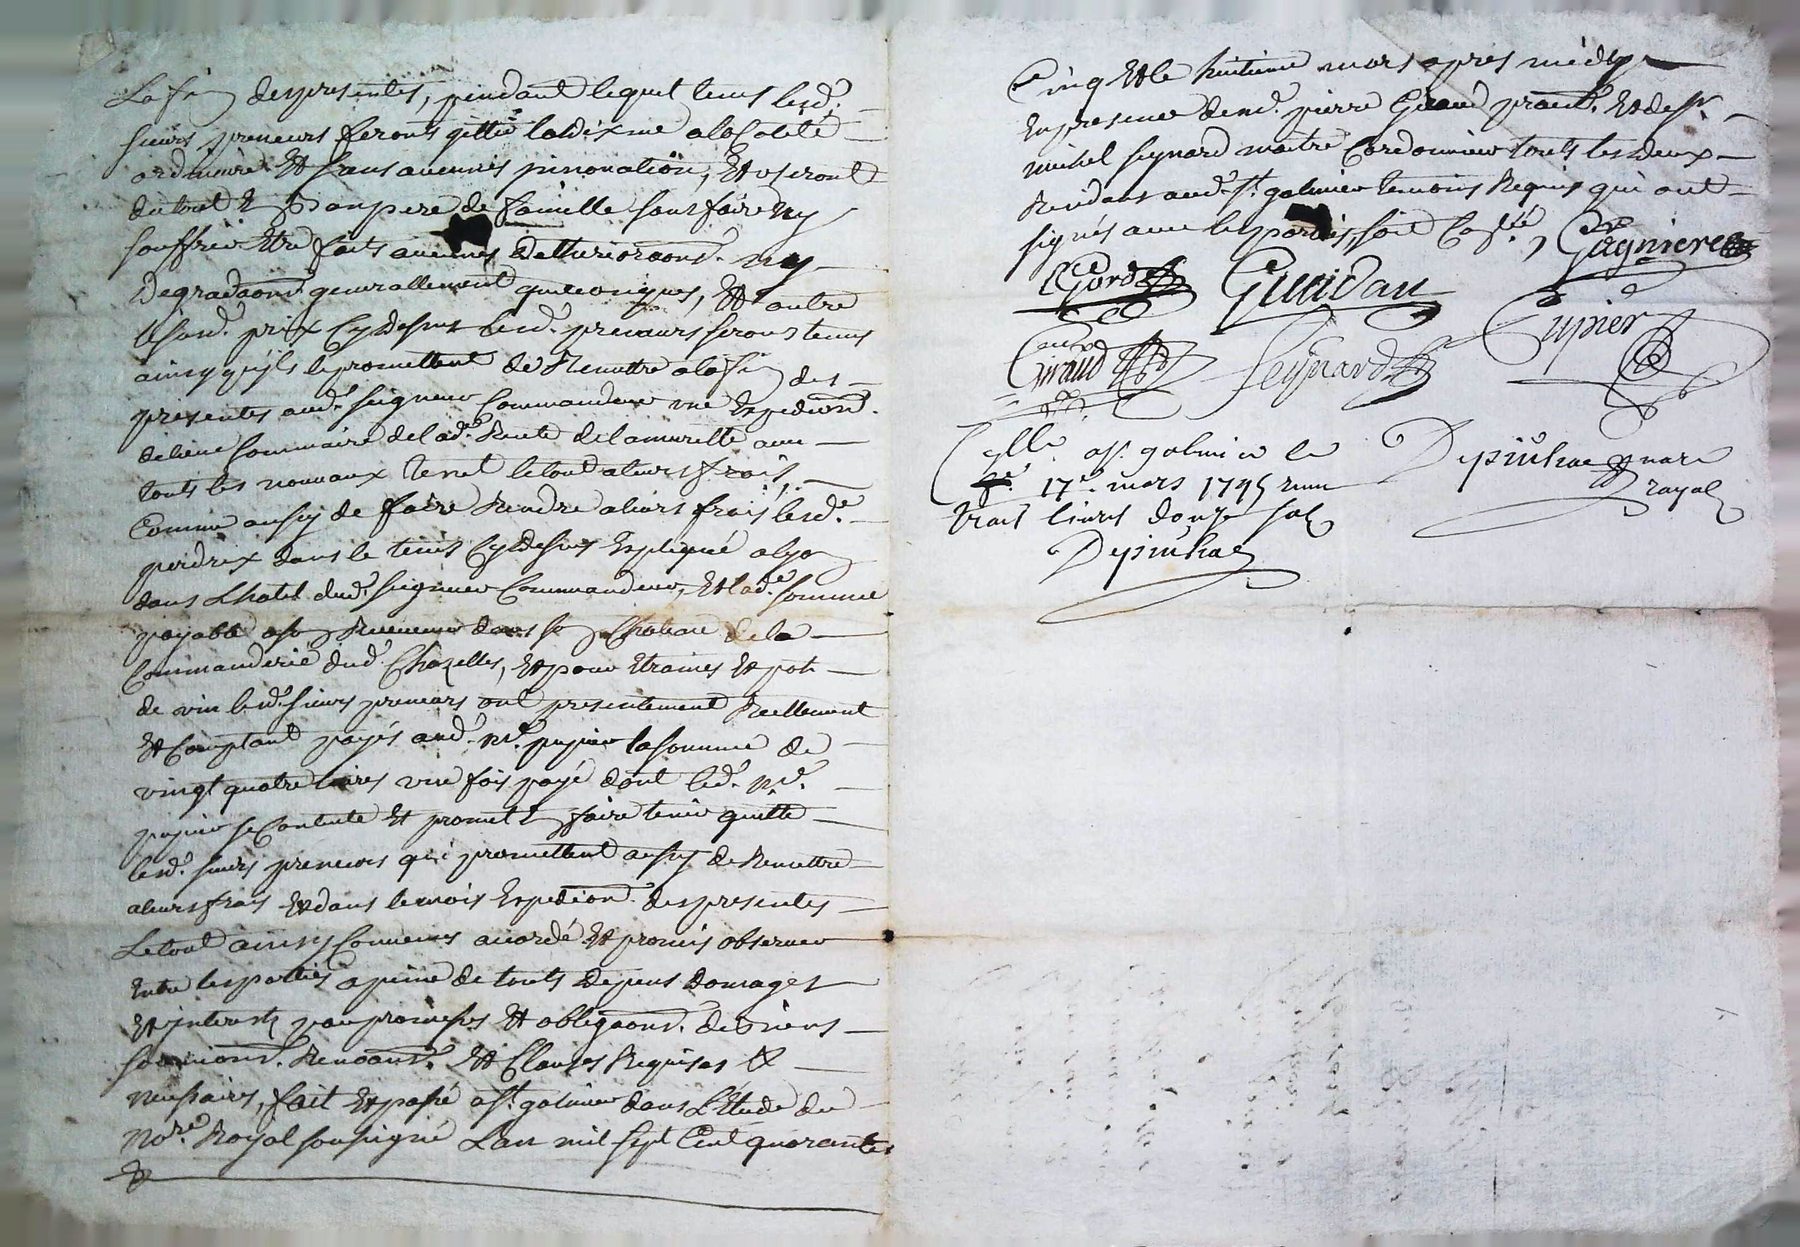 La fin des presentes, pendant lequel tems lesd.
sieurs preneurs feront la dixme a la Cotité
ordinaire Et sans aucunes jnnovation, Et useront
du tout En bon pere de famille sans faire ny
souffrir Etre faits aucunes Detterioraons. ny
Degradaons generallement quelconques, Et outre
Lesusd. prix Cydessus lesd. preneurs seront tenus
ainsy qu'jls le promettent de Remettre a la fin des
presentes aud. seigneur Commandeur une Expedion.
de lieve sommaire de lad. Rente de lamurette avec
touts les nouveaux tenet le tout a leurs frais,
Comme aussy de faire Rendre a leurs frais lesd.
perdrix dans le tems Cydessus Expliqué a lyon
dans L'hotel dud. seigneur Commandeur, Et lad. somme
payable a son Receveur dans son Chateau de la
Commanderie dud. Chazelles, Et pour Etraines Et pot
de vin lesd. sieurs preneurs ont presentement Reellement
Et Comptant payés aud. Me. pupier la somme de
vingt quatre livres une fois payé dont led. Me.
pupier se Contente Et promet En faire tenir quitte
lesd. sieurs preneurs qui promettent aussy de Remettre
a leurs frais Et dans le mois Expedion. des presentes
Le tout ainsy Convenus accordé Et promis observer
Entre les parties a peine de touts Depens Domages
Et jnterests par promesses Et obligaons. de biens
soumions. Renoans. Et Clauses Requises &
necessaires, fait Et passé a St. galmier dans L'Etude du
Nore. Royal soussigné Lan mil sept Cent quarante
Cinq Et le huitieme mars apres midy
En presence de me. pierre Giraud praticn. Et de sr.
michel seynard maitre Cordonnier touts les deux
Residans aud. St. galmier temoins Requis qui ont
signés avec les parties, soit Conllé, Gagniere
Guidau
Pupier
Giraud
Seynard
Cllé. a St. galmier le
17e. mars 1745 recu
trois livres douze sols
Depiuhac nore
royal
Depiuhac